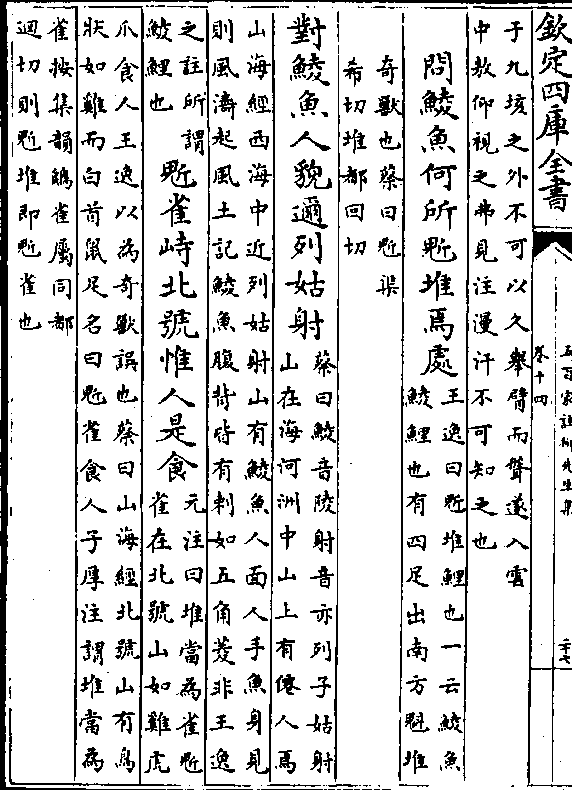 欽定四庫全書
五百家註柳先生集
卷十四
二十七
于九垓之外不可以久舉臂而聳遂入雲
中敖仰視之弗見注漫汗不可知之也
問鯪魚何所鬿堆焉處
王逸曰鬿堆鯉也一云鯪魚
鯪鯉也有四足出南方魁堆
奇獸也蔡曰鬿渠
希切堆都回切
對鯪魚人貌邇列姑射
蔡曰鯪音陵射音亦列子姑射
山在海河洲中山上有僊人焉
山海經西海中近列姑射山有鯪魚人面人手魚身見
則風濤起風土記鯪魚腹背皆有刺如五角菱非王逸
之註所謂
鯪鯉也
鬿雀峙北號惟人是食
元注曰堆當為雀鬿
雀在北號山如雞虎
爪食人王逸以為奇獸誤也蔡曰山海經北號山有鳥
狀如雞而白首鼠足名曰鬿雀食人子厚注謂堆當為
雀按集韻鵻雀屬同都
迴切則鬿堆即鬿雀也